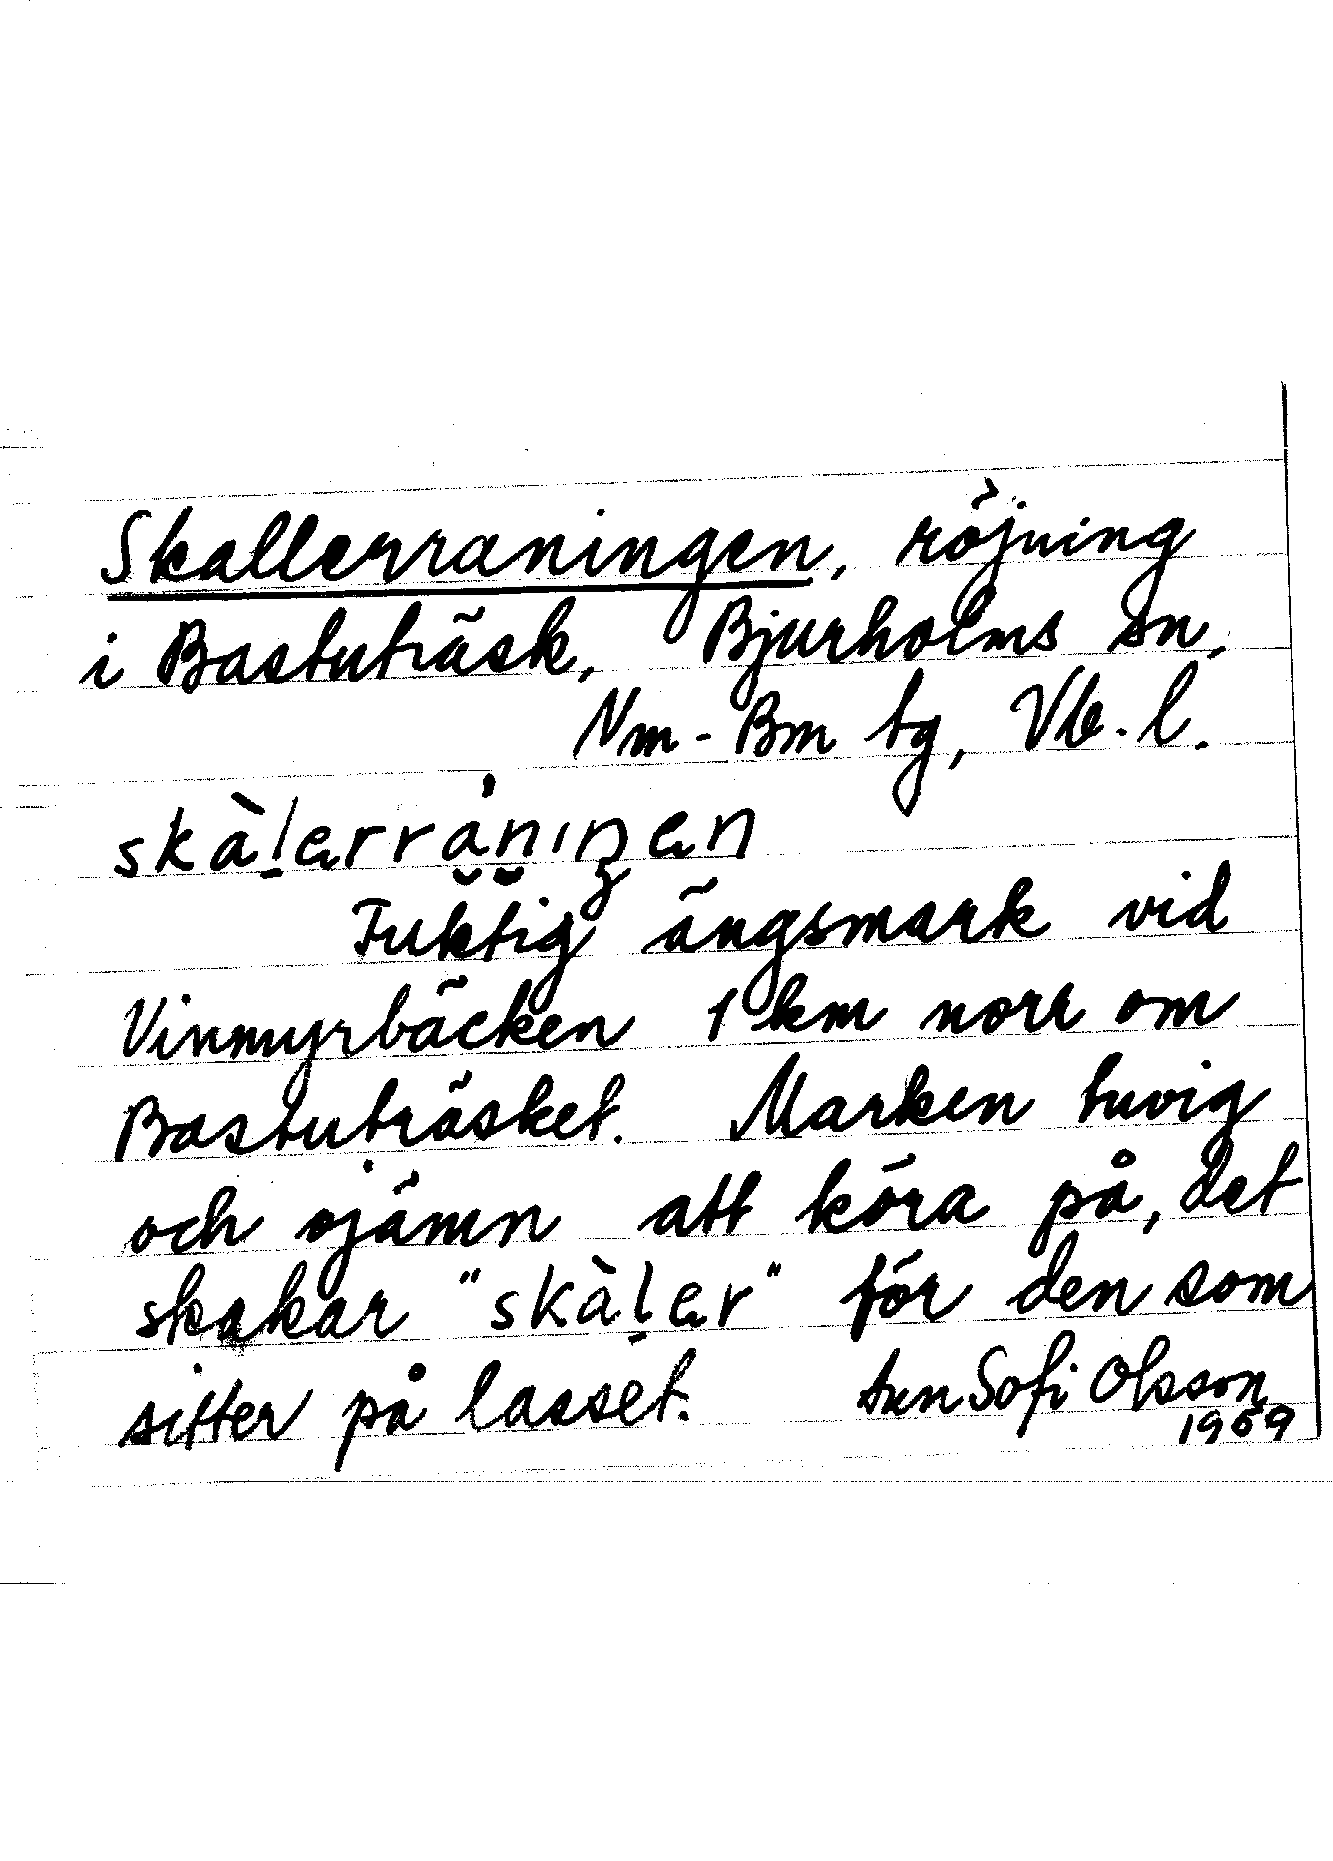 Skallerraningen, röjning
i Bastuträsk, Bjurholms sn,
Nm-Bm tg, Vb. l.
skàl̠erråniŋen
Fuktig ängsmark vid
Vinmyrbäcken 1 km norr om
Bastuträsket. Marken tuvig
och ojämn att köra på, det
skakar "skàl̠er" för den som
sitter på lasset. Sofi Olsson
1969